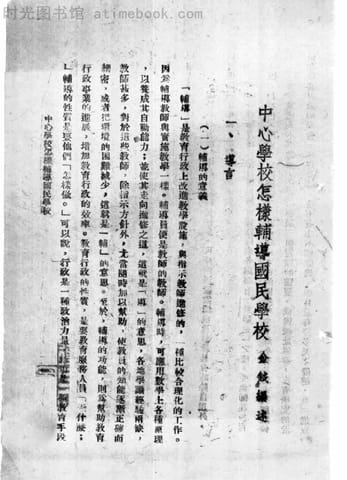 时光图书馆 - atimebook.com
中心學校怎樣輔導國民學校
金 編述
一、導言
(一)輔導的意義
「輔導」是教育行政上改進教學設施,與指示教師進修的,一種比較合理化的工作。
因爲輔導教師與實施教學一樣。輔導員便是教師的教師。輔導時,可應用教學上各種原理
,以養成其自動能力;並使其走向進修之道,這就是「導」的意思,各地學識經驗兩缺,
教師甚多,對於這些教師,除指示方針外,尤當隨時加以幫助,使教員的知能逐漸正確而
精密,或者把環境的困難減少,這就是「輔」的意思。至於,輔導的功能,則爲幫助教育
行政事業的進展,增加教育行政的效率。教育行政的性質,是要教育服務人員「做什麼;
」輔導的性質是要他們「怎樣做。」可以說,行政是一種政治力量,輔導是一個教育手段
中心學校怎樣輔導國民學校